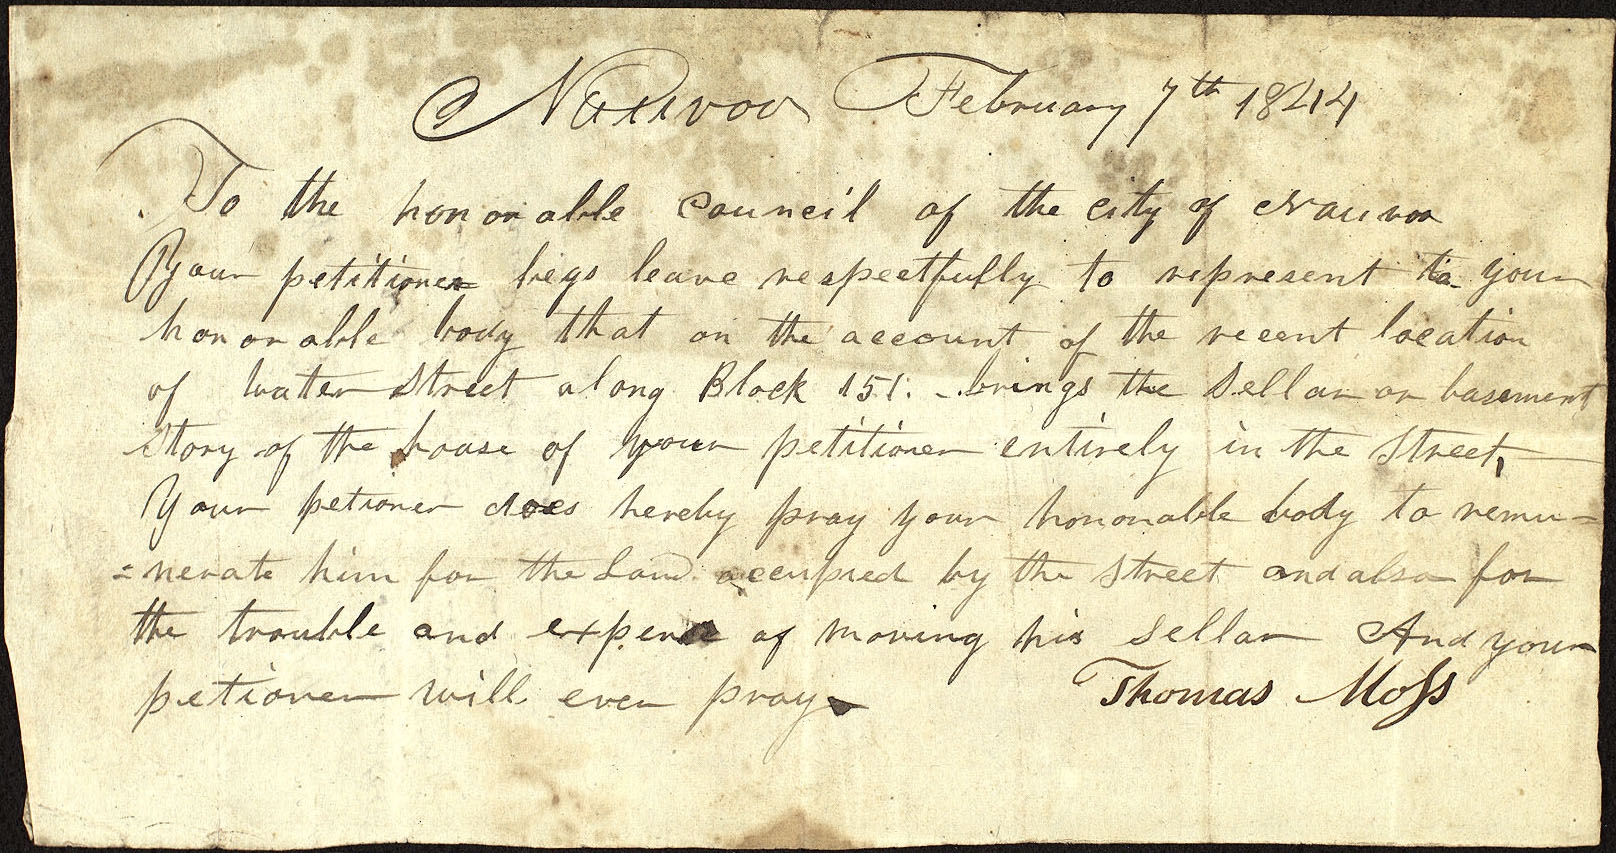 Nauvoo February 7th 1844
To the honorable council of the city of Nauvoo
Your petitioner begs leave respectfully to represent to your
honorable body that on the account of the recent location
of water Street along Block 151. brings the Sellar or basement
Story of the house of your petitioner entirely in the Street,
Your petioner does hereby pray your honorable body to remu=
=nerate him for the Land occupied by the Street and also for
the trouble and expence of moving his Sellar And your
petioner will ever pray
Thomas Moss